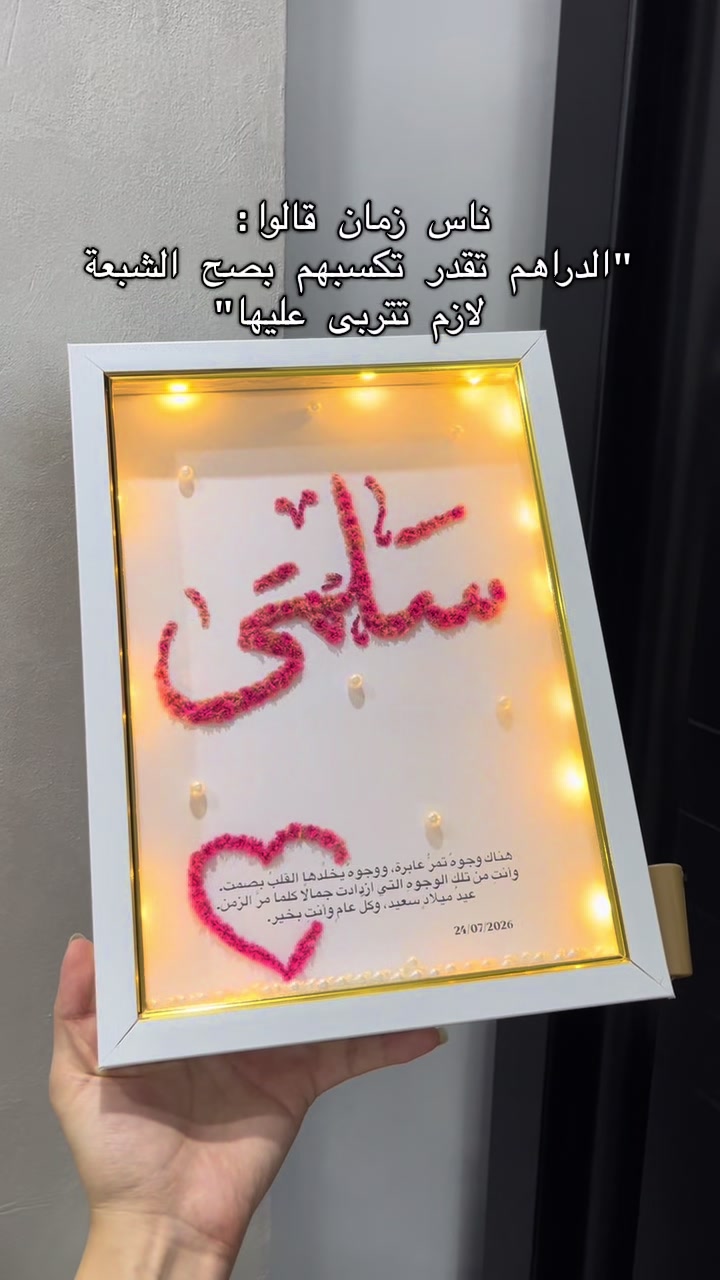 ناس زمان قالوا:
"الدراهم تقدر تكسبهم بصح الشبعة
لازم تتربى عليها"
سلمى
هناك وجوهٌ تمرُّ عابرة، ووجوه يخلّدها القلبُ بصمت.
وأنت من تلك الوجوه التي ازدادت جمالًا كلما مرّ الزمن.
عيدُ ميلادٍ سعيد، وكل عام وأنت بخير.
24/07/2026